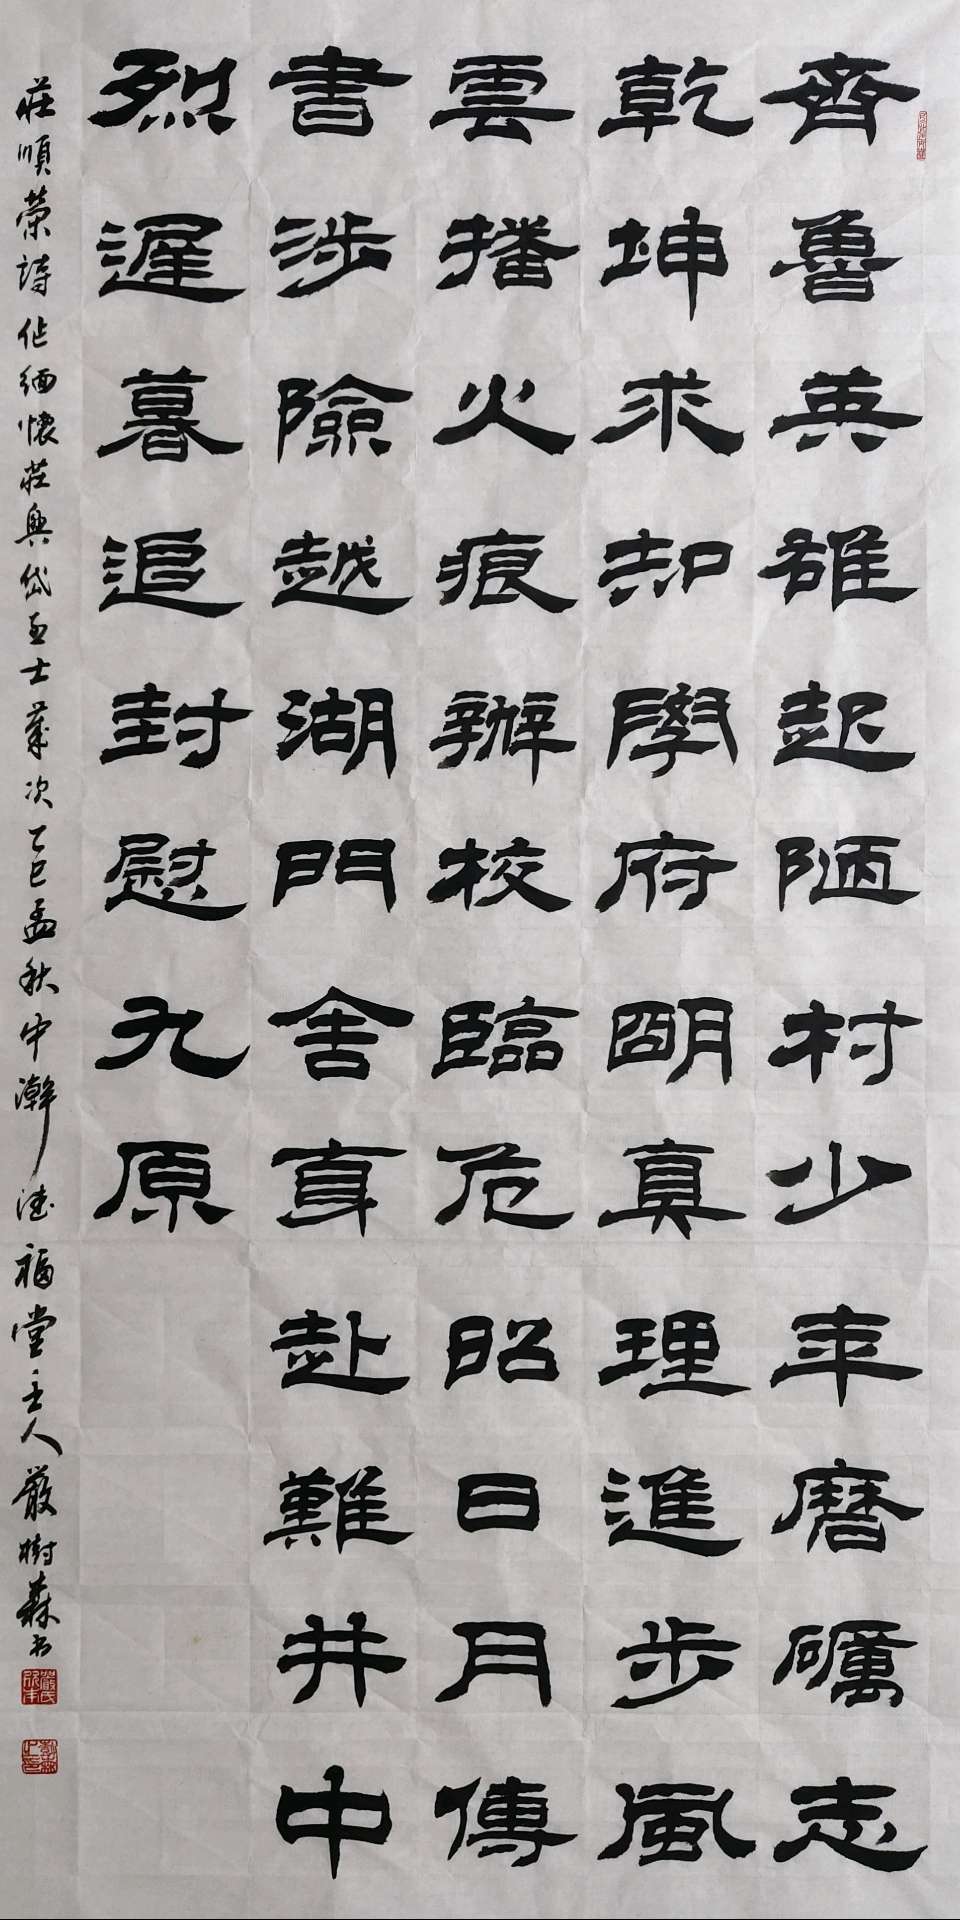 齊魯英雄起陋村少年磨礪志
乾坤求知學府明真理進步風
雲播火痕辦校臨危昭日月傳
書涉險越湖門舍身赴難井中
烈遲暮追封慰九原
莊順榮詩作緬懷莊興岱烈士歲次乙巳孟秋中澣德福堂主人嚴樹森书